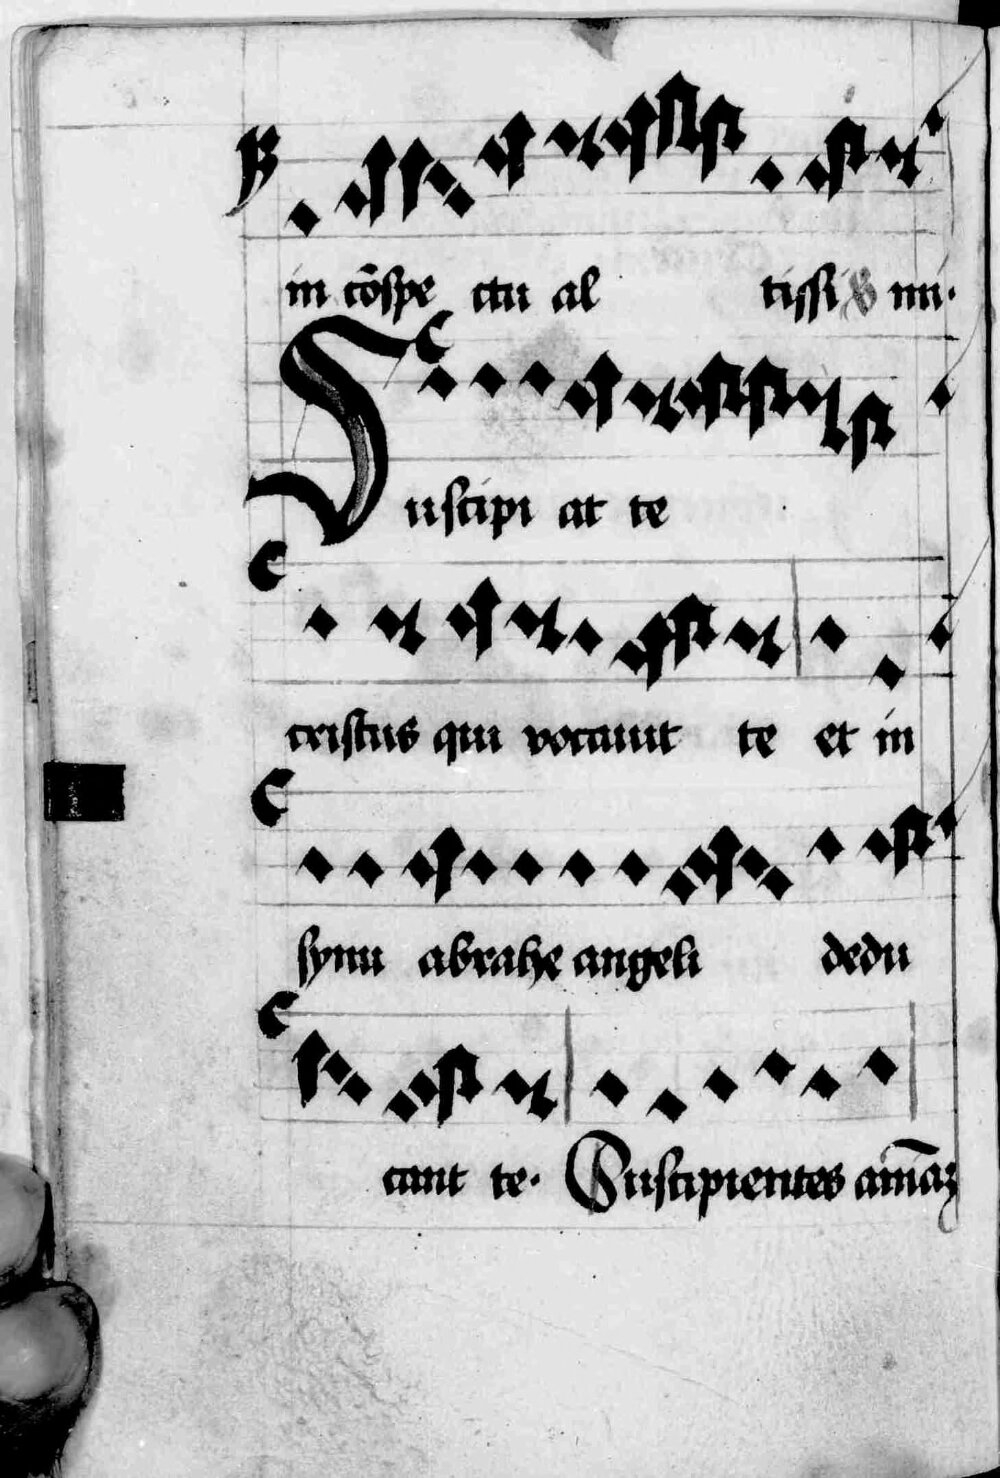 in cōspe ctu al tissi mi.
Suscipi at te
cristus qui vocauit te et in
synu abrahe angeli dedu
cant te. Suscipientes aīmaꝫ